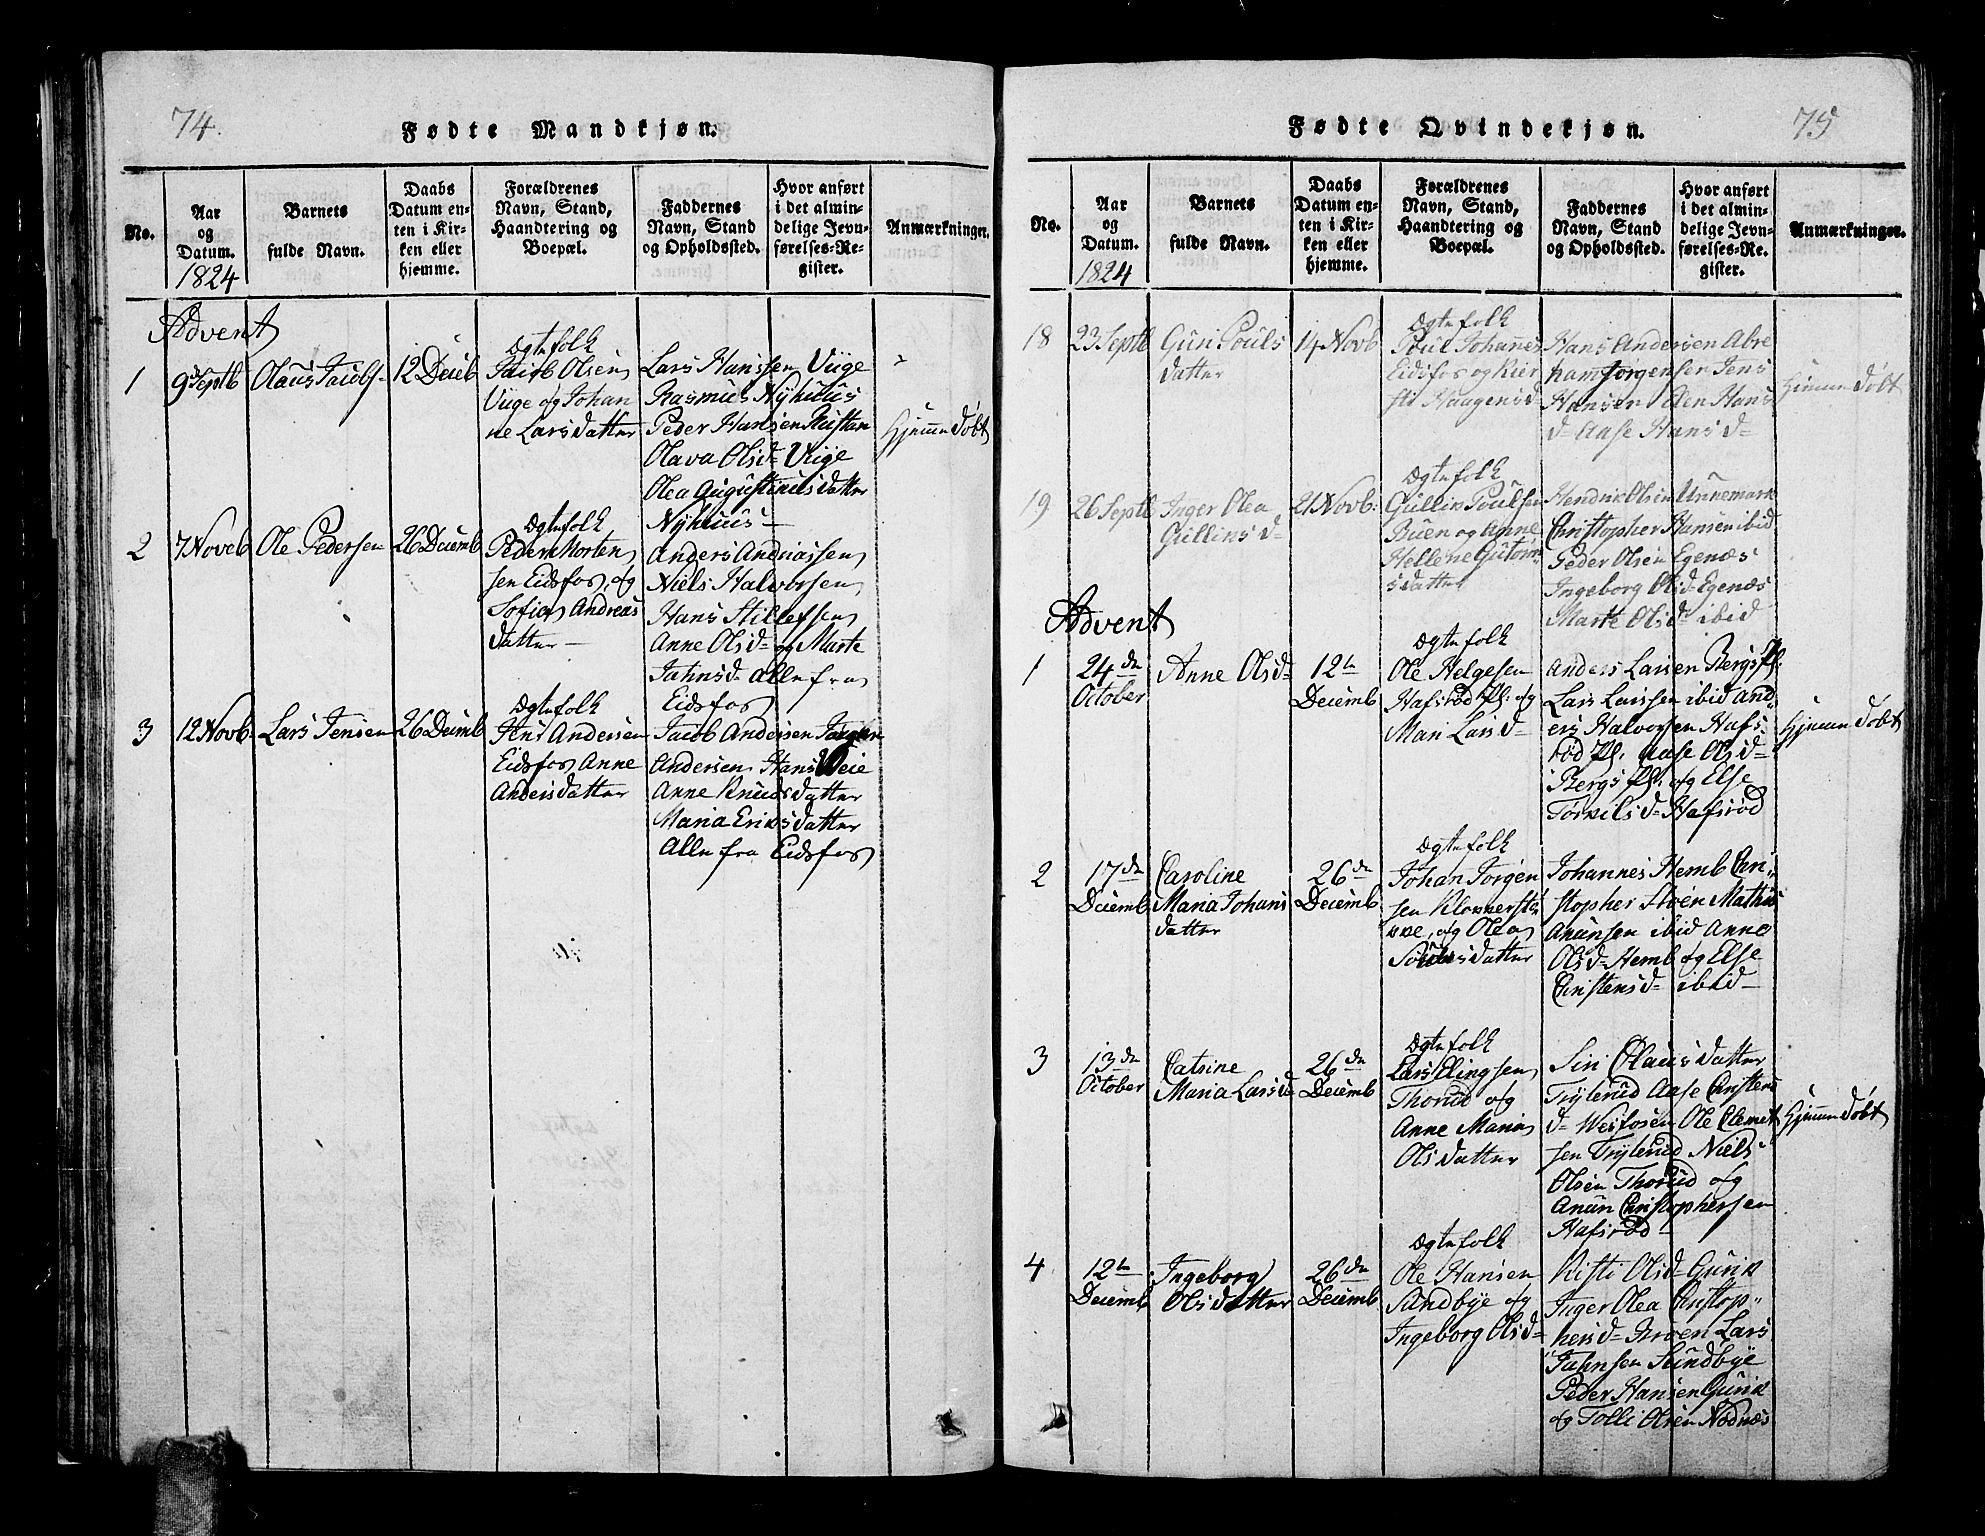 74.
Fødte Mandkjøn.
No.
Aar
og
Datum.
1824
Barnets
fulde Navn.
Daabs
Datum en-
ten i Kir-
ken eller
hjemme.
Forældrenes
Navn, Stand,
Haandtering og
Boepæl.
Faddernes
Navn, Stand
og Opholdssted.
Hvor anført
i det almin-
delige Jevn-
førelses-Re-
gister.
Anmærkninger.
Advent
1
9 Septb
Olaus Jacobs-
12 Decb
Ægtefolk
Jacob Olsen
Viige og Johan
ne Larsdatter
Lars Hanssen Viige
Rasmus Nyhuus
Peder Hansen
Olava Olsd= Viige
Olea Augustinusdatter
Nyhuus-
Hjemmedøbt
2
7 Noveb
Ole Pedersen
26 Decemb
Ægtefolk
Peder Morten
sen Eidsfos, og
Sofia Andreas
datter-
Anders Andriassen
Niels Halvorsen
Hans Stillefsen
Anne Olsd= og Marte
Jahnsd= alle fra
Eidsfos
3
12 Novb.
Lars Jensen
26 Decemb
Ægtefolk
Jens Andersen
Eidsfos Anne
Andersdatter
Jacob Andersen
Andersen Hans Weie
Anne Knudsdatter
Maria Eriksdatter
Alle fra Eidsfos
75
Fødte Qvindekjøn.
No.
Aar
og
Datum.
1824
Barnets
fulde Navn.
Daabs
Datum en-
ten i Kir-
ken eller
hjemme.
Forældrenes
Navn, Stand,
Haandtering og
Boepæl.
Faddernes
Navn, Stand
og Opholdssted.
Hvor anført
i det almin-
delige Jevn-
førelses-Re-
gister.
Anmærkninger.
18
23 Septb
Guri Pouls
datter
14 Novb
Ægtefolk
Poul Johannes
Eidsfos og Kier
sti Haagensd=
Hans Andersen Abre
ham Jørgensen Jens
Hansen Hans
d= Aase Hansd=
Hjemmedøbt
19
26 Septb
Inger Olea
Gulliksd=
21 Novb.
Ægtefolk
Gullik Poulsen
Buen og Anne
Hellene Gutorm
sdatter
Hendrik Olsen Unnemark
Christopher Hansen ibid
Peder Olsen Egenæs
Ingeborg Olsd= Egenæs
Marte Olsd= ibid
Advent
1
24de
October
Anne Olsd=
12te
Decemb
Ægtefolk
Ole Helgesen
Hafsrød Pl. og
Mari Larsd=
Anders Larsen Bergs Pl.
Lars Larssen ibid And=
ers Halvorsen Hafs
rød Pl. Aase Olsd=
Bergs Pl. og Else
Torkilsd= Hafsrød
Hjemmedøbt
2
17de
Decemb
Caroline
Maria Johans
datter
26de
Decemb
Ægtefolk
Johan Jørgen
sen Klokkerstø
kke, og Olea
datter
Johannes Hemb Chri=
stopher Støen Mathis
Anunsen ibid Anne
Olsd= Hemb og Else
Christensd= ibid-
3
13de
October
Catrine
Maria Larsd
26de
Decemb
Ægtefolk
Lars Elingsen
Thorud og
Anne Maria
Olsdatter
Siri Olausdatter
Trylerud Aase Christens
d= Wesfosen Ole Clemet
sen Trylerud Niels
Olsen Thorud og
Anun Christophersen
Hafsrød-
Hjemmedøbt
4
12te
Decemb
Ingeborg
Olsdatter
26de
Decemb
Ægtefolk
Ole Hansen
Sandbye og
Ingeborg Olsd=
Kisti Olsd= Gurik
Inger Olea Christop=
hersd= Lars
Jahnsen Sundbye
Peder Hansen Gurik
og Tolli Olsen Nødnæs